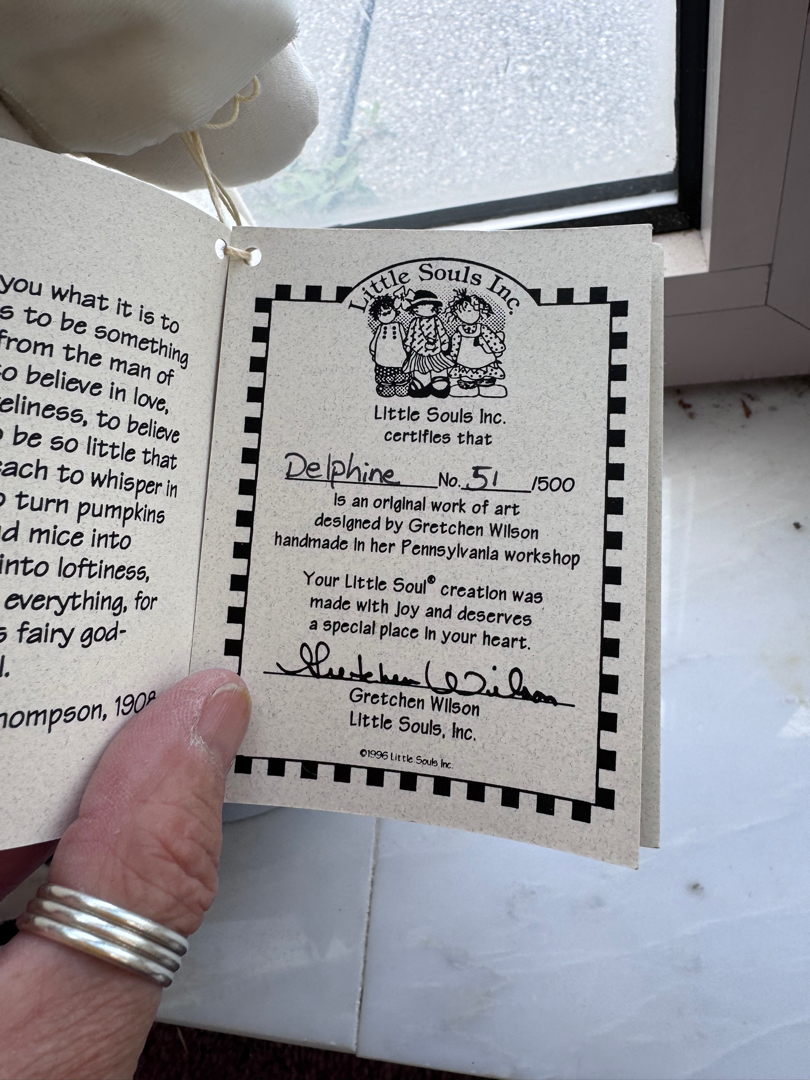 you what it is to
s to be something
from the man of
to believe in love,
eliness, to believe
be so little that
each to whisper in
turn pumpkins
d mice into
into loftiness,
everything, for
s fairy god-
l.
hompson, 1908
Little Souls Inc.
Little Souls Inc.
certifies that
Delphine No. 51 /500
is an original work of art
designed by Gretchen Wilson
handmade in her Pennsylvania workshop
Your Little Soul® creation was
made with joy and deserves
a special place in your heart.
Gretchen Wilson
Gretchen Wilson
Little Souls, Inc.
©1996 Little Souls Inc.